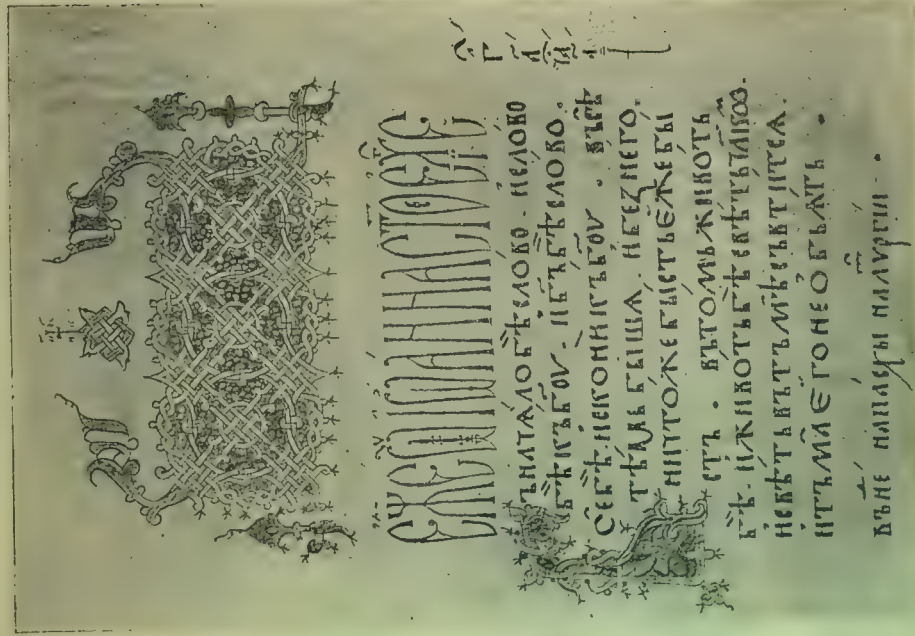 ЕЖЕ Ѿ ІѠАННА СТОЕ
ЪНАЧАЛО БѢ СЛОВО · И СЛОВО
БѢ КЪ Б҃ОУ · И Б҃Ъ БѢ СЛОВО ·
СЕ БѢ ИСКОНИ КЪ Б҃ОУ · ВЪСѢ
ТѢМЬ БЫША · И БЕЗ НЕГО
НИЧТОЖЕ БЫСТЬ ЕЖЕ БЫ
СТЬ · ВЬ ТОМЬ ЖИВОТЬ
БѢ · И ЖИВОТЬ БѢ СВѢТЬ ЧЛ҃КОⷨ ·
И СВѢТЬ ВЬ ТЬМѢ СВЬТИТСѦ ·
И ТЪМА ЕГО НЕ ОБЬѦТЬ ·
ВЪ НЕ